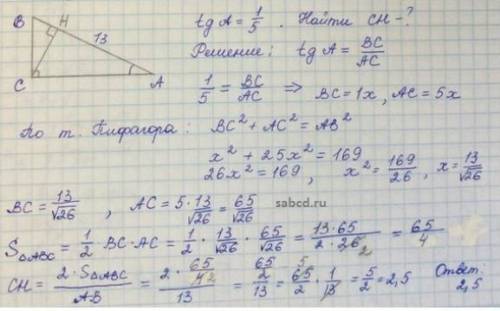 B H
13
C A
tg A = 1/5 . Найти CH - ?
Решение: tg A = BC/AC
1/5 = BC/AC ⇒ BC = 1x, AC = 5x
По т. Пифагора: BC² + AC² = AB²
x² + 25x² = 169
26x² = 169, x² = 169/26, x = 13/√26
sabcd.ru
BC = 13/√26, AC = 5·13/√26 = 65/√26
S△ABC = 1/2 BC·AC = 1/2 · 13/√26 · 65/√26 = 13·65/2·26 2 = 65/4
CH = 2·S△ABC/AB = 2·65/4 2/13 = 65/2/13 = 65 5/2 · 1/13 = 5/2 = 2,5 Ответ:
2,5